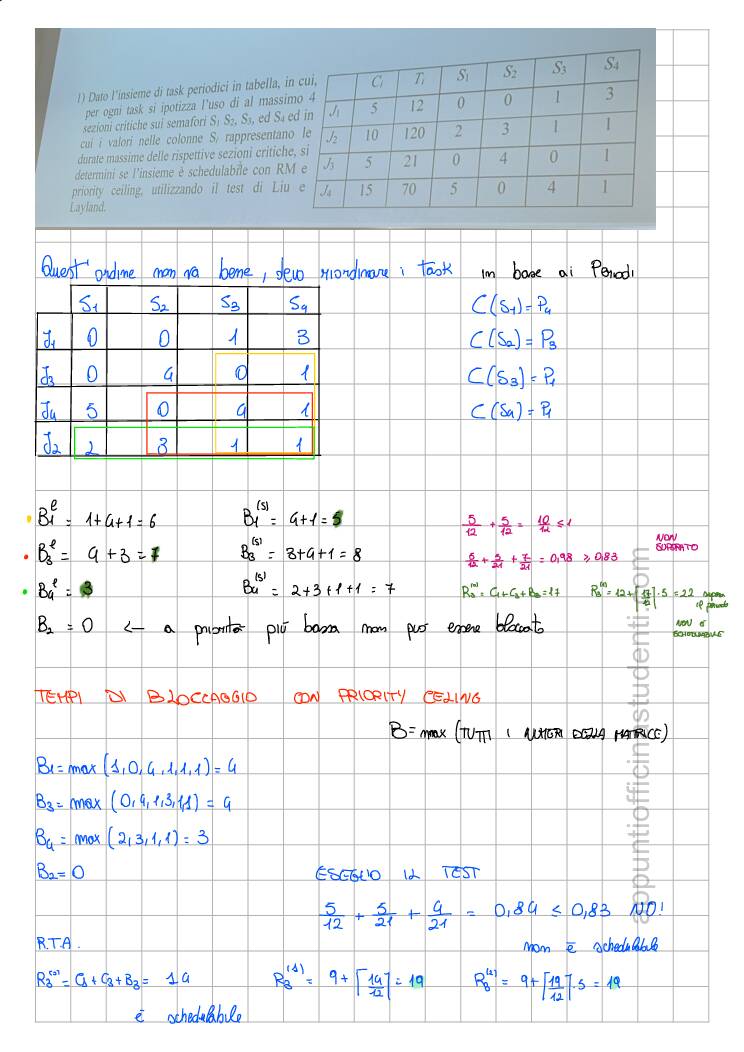 1) Dato l'insieme di task periodici in tabella, in cui,
per ogni task si ipotizza l'uso di al massimo 4
sezioni critiche sui semafori S1 S2, S3, ed S4 ed in
cui i valori nelle colonne Si rappresentano le
durate massime delle rispettive sezioni critiche, si
determini se l'insieme è schedulabile con RM e
priority ceiling, utilizzando il test di Liu e
Layland.
Ci Ti S1 S2 S3 S4
J1 5 12 0 0 1 3
J2 10 120 2 3 1 1
J3 5 21 0 4 0 1
J4 15 70 5 0 4 1
Quest'ordine non va bene, devo riordinare i task in base ai Periodi
S1 S2 S3 S4
J1 0 0 1 3
J3 0 4 0 1
J4 5 0 4 1
J2 2 3 1 1
C(S1) = P4
C(S2) = P3
C(S3) = P1
C(S4) = P1
B1^l = 1+4+1 = 6
B1^(S) = 4+1 = 5
5/12 + 5/12 = 10/12 ≤ 1
B3^l = 4+3 = 7
B3^(S) = 3+4+1 = 8
5/12 + 5/21 + 7/21 = 0,98 ≥ 0,83
NON SUPERATO
B4^l = 3
B4^(S) = 2+3+1+1 = 7
R3^(0) = C1+C3+B3 = 17
R3^(1) = 12+⌈17/12⌉·5 = 22 supera il periodo
NON È SCHEDULABILE
B2 = 0 ← a priorità più bassa non può essere bloccato
TEMPI DI BLOCCAGGIO CON PRIORITY CELING
B = max (TUTTI I NUMERI DELLA MATRICE)
B1 = max (1,0,4,1,1,1) = 4
B3 = max (0,4,1,3,1,1) = 4
B4 = max (2,3,1,1) = 3
B2 = 0
ESEGUO IL TEST
5/12 + 5/21 + 4/21 = 0,84 ≤ 0,83 NO!
non è schedulabile
R.T.A.
R3^(0) = C1+C3+B3 = 14
R3^(1) = 9+⌈14/12⌉ = 19
R3^(2) = 9+⌈19/12⌉·5 = 19
è schedulabile
appuntiofficinastudenti.com